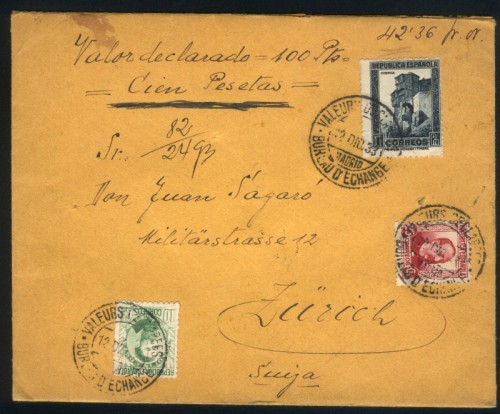 42'36 fr. or.
Valor declarado = 100 Pts =
= Cien Pesetas =
REPUBLICA ESPAÑOLA
CORREOS
VALEURS DECLAREES
12 DIC 33
MADRID
BUREAU D'ECHANGE
82
2493
Sr.
Don Juan Sagaró
Militärstrasse 12
VALEURS DECLAREES
D'ECHANGE
Zürich
Suiza
VALEURS
12 DIC
BUREAU D'ECHANGE
CORREOS
REPUBLICA ESPAÑOLA